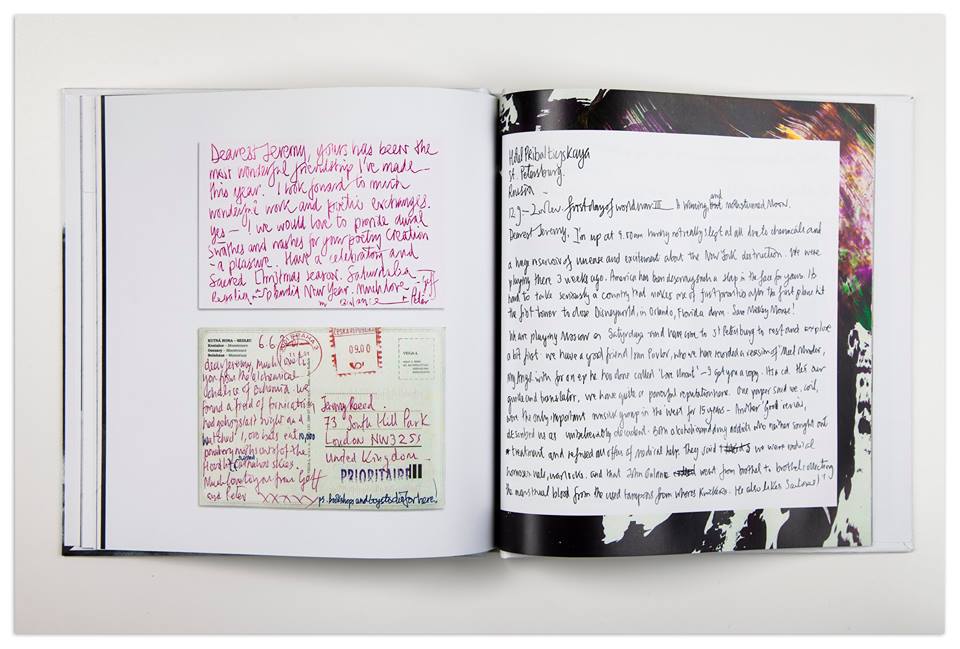 Dearest Jeremy, yours has been the
most wonderful friendship I've made
this year. I look forward to much
wonderful work and poetic exchanges.
Yes — we would love to provide
and for your poetry creation
- a pleasure. Have a celebratory and
Sacred Christmas season.
Splendid New Year. Much love
Geff
Peter
KUTNÁ HORA – SEDLEC
Kostnice –
Ossuary –
Beinhaus –
6.6.
PRAHA
09.00
dear Jeremy, Much love to
you from the alchemical
of Bohemia. We
found a field of fornicating
hedgehogs last night and
watched 1,000 bats eat 10,000
mouthfuls of the
Much love to you from Geff
and Peter
XXXXX
Jeremy Reed.
73 South Hill Park
London NW3 2SS
United Kingdom
PRIORITAIRE
ps.
here!
Hotel Pribaltiyskaya
St. Petersburg.
Russia
first day of world war III A and Moon.
Dearest Jeremy, I'm up at having not really slept at all due to chemicals and
a huge of unease and excitement about the New York destruction. We were
playing there 3 weeks ago. America has been deserving such a slap in the face for years. It's
hard to take seriously a country that makes one of its first priorities after the first plane hit
the first tower to close Disneyworld, in Orlando, Florida down. Save Mickey Mouse!
We are playing Moscow on Saturday and have come to St Petersburg to rest and explore
a bit first. We have a good friend Ivan Pavlov, who we have recorded a version of
My Angel with for an ep he has done called 'Love Uncut' – I'll get you a copy. It's a cd. He's our
guide and translator. We have quite a powerful reputation here. One paper said we, coil,
were the only important music group in the west for 15 years – Another good review,
described us as unbelievably decadent. Both alcohol and drug addicts who neither sought out
treatment and refused all offers of medical help. They said we went
and that John Balance went from brothel to brothel collecting
the menstrual blood from the used tampons from whores He also likes